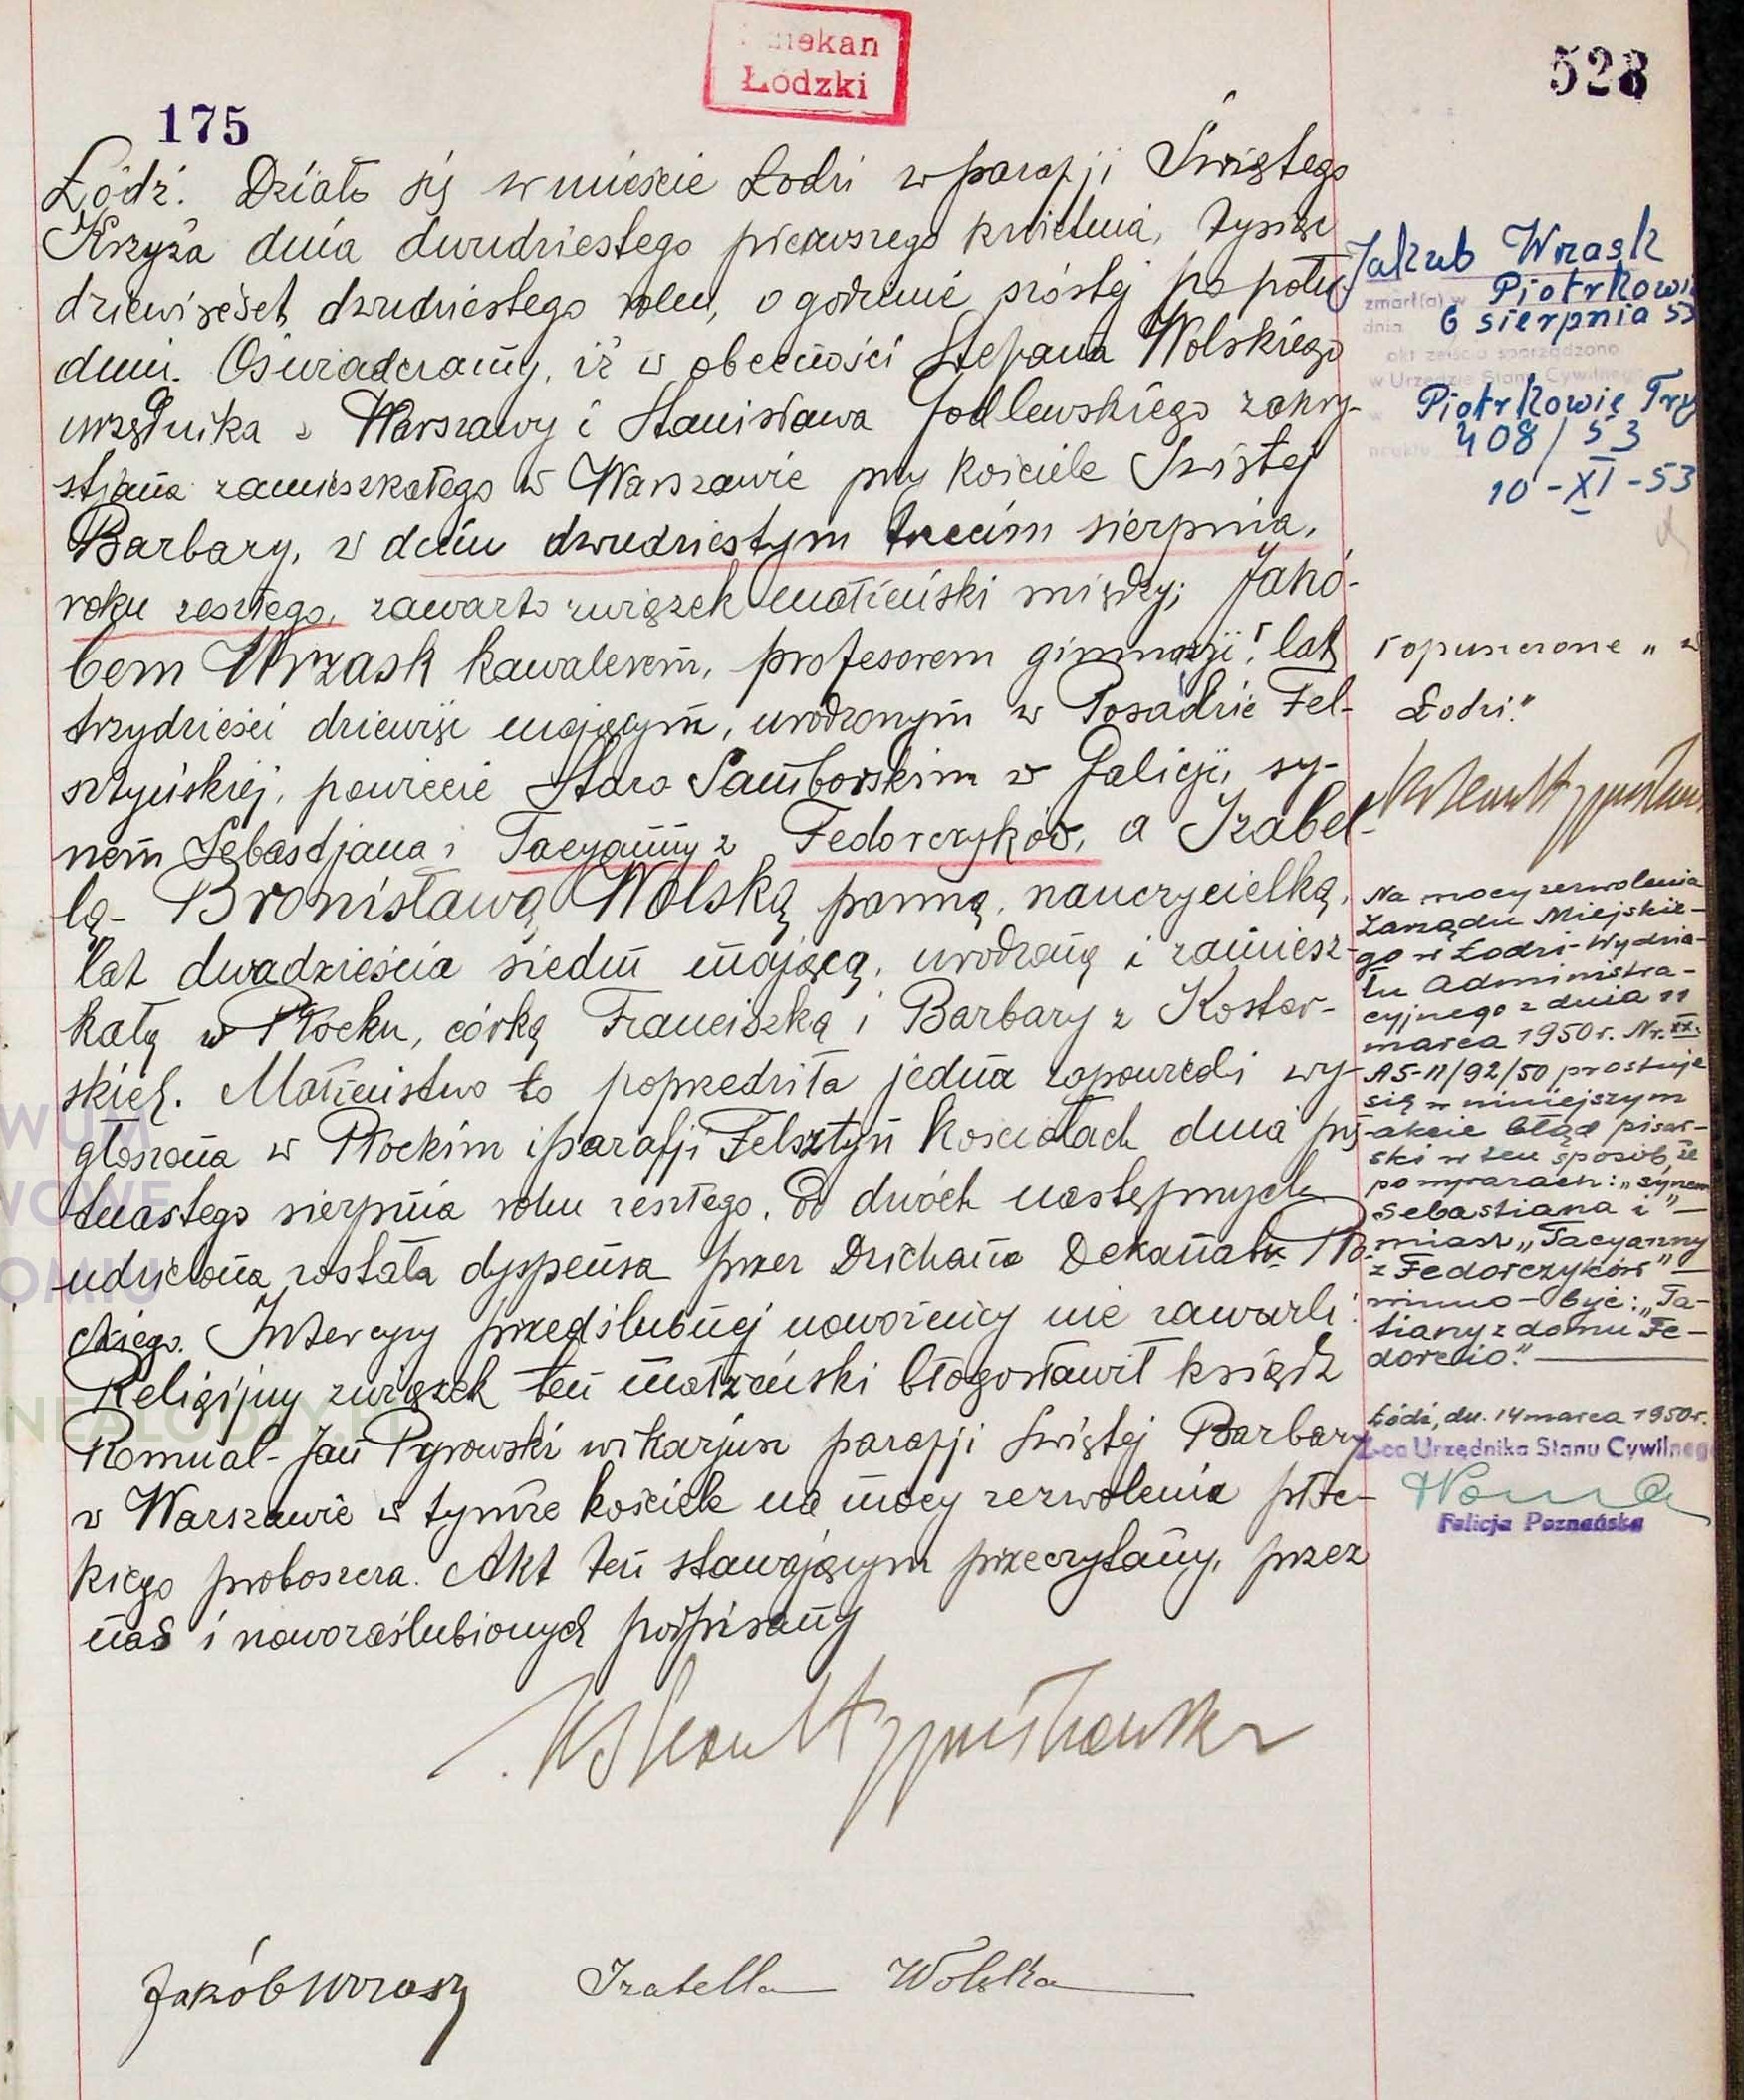 Dziekan
Łódzki
528
175
Łódź. Działo się w mieście Łodzi w parafji Świętego
Krzyża dnia dwudziestego pierwszego kwietnia, tysiąc
dziewięćset dwudziestego roku, o godzinie szóstej po połu-
dniu. Oświadczamy, iż w obecności Stefana Wolskiego
urzędnika z Warszawy i Stanisława Godlewskiego zakry-
stjana zamieszkałego w Warszawie przy kościele Świętej
Barbary, w dniu dwudziestym trzecim sierpnia,
roku zeszłego, zawarto związek małżeński między; Jakó-
bem Wrzask kawalerem, profesorem gimnazji, lat
trzydzieści dziewięć mającym, urodzonym w Posadzie Fel-
sztyńskiej, powiecie Staro Samborskim w Galicji, sy-
nem Sebastjana i Tacyanny z Fedorczyków, a Izabel-
lą-Bronisławą Wolską panną, nauczycielką,
lat dwadzieścia siedm mającą, urodzoną i zamiesz-
kałą w Płocku, córką Franciszka i Barbary z Koster-
skich. Małżeństwo to poprzedziła jedna zapowiedź wy-
głoszona w Płockim i parafji Felsztyn kościołach dnia pię-
tnastego sierpnia roku zeszłego. Od dwóch następnych
udzielona została dyspensa przez Dziekana Dekanatu Pło-
ckiego. Intercyzy przedślubnej nowożeńcy nie zawarli.
Religijny związek ten małżeński błogosławił ksiądz
Romual-Jan Pyrowski wikarjusz parafji świętej Barbary
w Warszawie w tymże kościele na mocy zezwolenia płoc-
kiego proboszcza. Akt ten stawającym przeczytany, przez
nas i nowozaślubionych podpisany
Jakób Wrzask Izabella Wolska
Jakub Wrzask
zmarł(a) w Piotrkowie
dnia 6 sierpnia 53
akt zejścia sporządzono
w Urzędzie Stanu Cywilnego
Piotrkowie Try
408/53
10-XI-53
opuszczone „w
Łodzi."
Na mocy zezwolenia
Zarządu Miejskie-
go w Łodzi-Wydzia-
łu Administra-
cyjnego z dnia 11
marca 1950r. Nr. XX.
AS-II/92/50 prostuje
się w niniejszym
akcie błąd pisar-
ski w ten sposób, że
po wyrazach: „synem
Sebastiana i"—
miast „Tacyanny
z Fedorczyków"—
winno-być: „Ta-
tiany z domu Fe-
dorcio."—
Łódź, dn. 14 marca 1950r.
Z-ca Urzędnika Stanu Cywilnego
Felicja Poznańska